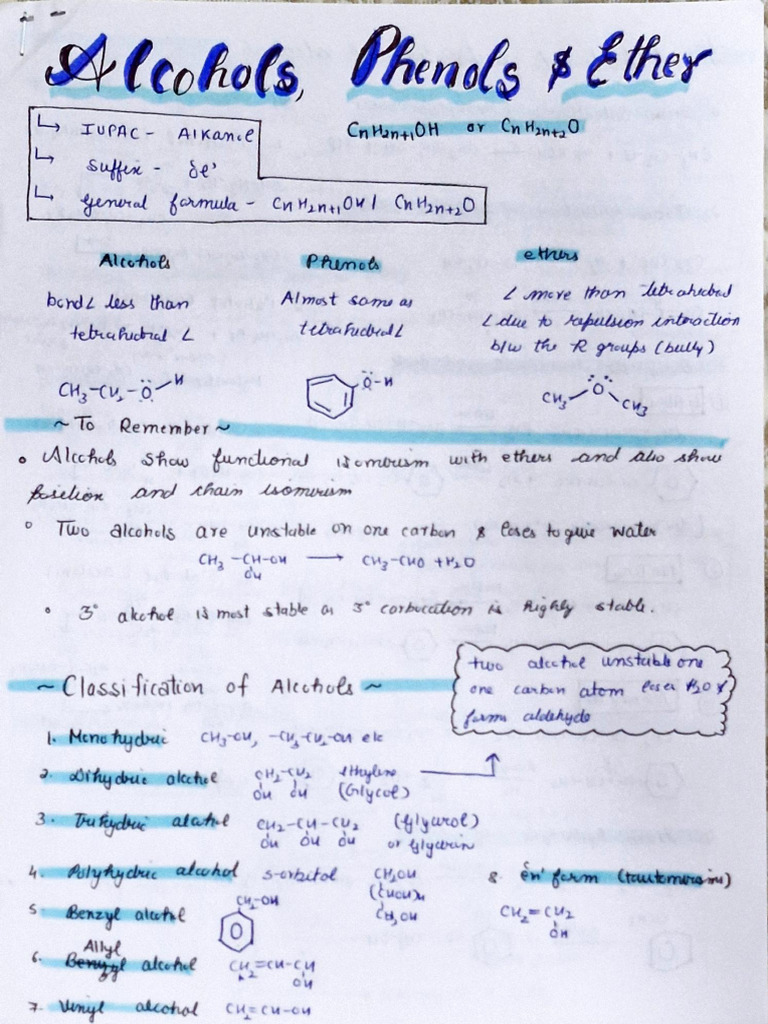 Alcohols, Phenols & Ether
CnH2n+1OH or CnH2n+2O
↳ IUPAC - Alkanol
↳ Suffix -
↳ general formula - CnH2n+1OH / CnH2n+2O
Alcohols
bond∠ less than
tetrahedral ∠
CH3-CH2-Ö-H
Phenols
Almost same as
tetrahedral∠
Ö-H
ethers
∠ more than tetrahedral
∠ due to repulsion interaction
b/w the R groups (bulky)
CH3 O CH3
~ To Remember ~
• Alcohols show functional isomerism with ethers and also show
position and chain isomerism
• Two alcohols are unstable on one carbon & loses to give water
CH3-CH-OH → CH3-CHO + H2O
OH
• 3° alcohol is most stable as 3° carbocation is highly stable.
two alcohol unstable one
one carbon atom loses H2O &
forms aldehyde
~ Classification of Alcohols ~
1. Monohydric CH3-OH, -CH3-CH2-OH etc
2. Dihydric alcohol CH2-CH2 ethylene
OH OH (Glycol)
3. Trihydric alcohol CH2-CH-CH2 (Glycerol)
OH OH OH or Glycerin
4. Polyhydric alcohol s-orbitol CH2OH
(CHOH)4
CH2OH
5. Benzyl alcohol CH2-OH
6. Allyl alcohol CH2=CH-CH
OH
7. Vinyl alcohol CH2=CH-OH
8. en' form (tautomerism)
CH2=CH2
OH